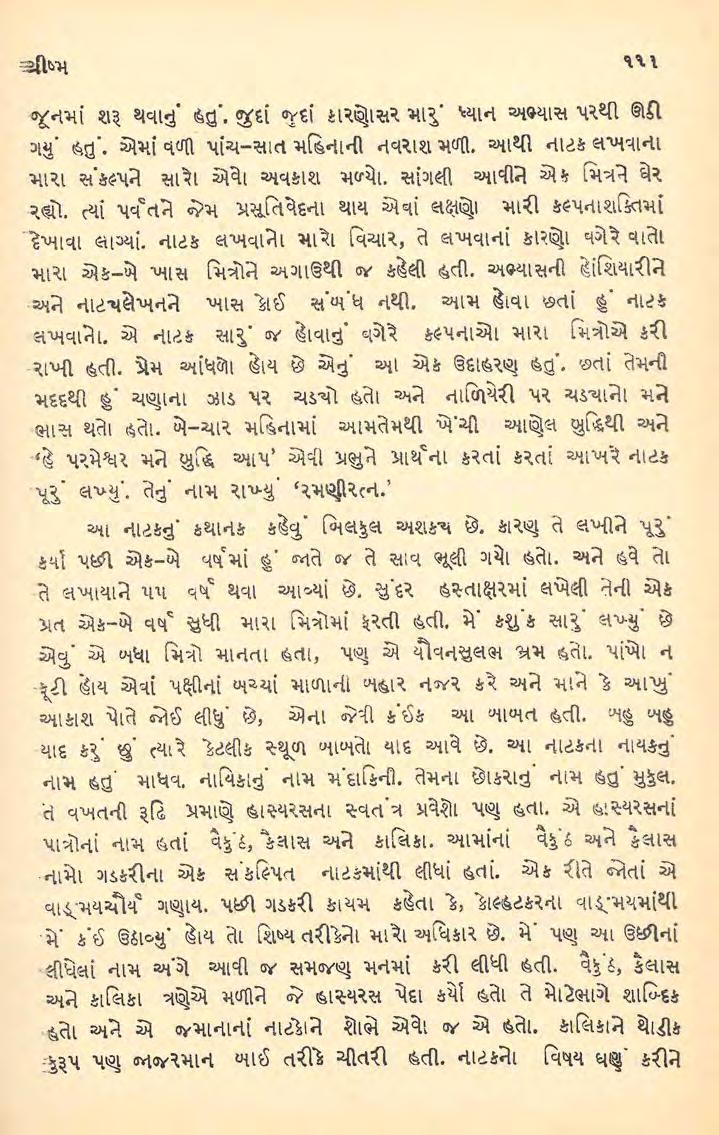 ગ્રીષ્મ ૧૧૧
જૂનમાં શરૂ થવાનું હતું. જુદાં જુદાં કારણોસર મારું ધ્યાન અભ્યાસ પરથી ઊડી
ગયું હતું. એમાં વળી પાંચ-સાત મહિનાની નવરાશ મળી. આથી નાટક લખવાના
મારા સંકલ્પને સારો એવો અવકાશ મળ્યો. સાંગલી આવીને એક મિત્રને ઘેર
રહ્યો. ત્યાં પર્વતને જેમ પ્રસૂતિવેદના થાય એવાં લક્ષણો મારી કલ્પનાશક્તિમાં
દેખાવા લાગ્યાં. નાટક લખવાનો મારો વિચાર, તે લખવાનાં કારણો વગેરે વાતો
મારા એક-બે ખાસ મિત્રોને અગાઉથી જ કહેલી હતી. અભ્યાસની હોંશિયારીને
અને નાટ્યલેખનને ખાસ કોઈ સંબંધ નથી. આમ હોવા છતાં હું નાટક
લખવાનો. એ નાટક સારું જ હોવાનું વગેરે કલ્પનાઓ મારા મિત્રોએ કરી
રાખી હતી. પ્રેમ આંધળો હોય છે એનું આ એક ઉદાહરણ હતું. છતાં તેમની
મદદથી હું ચણાના ઝાડ પર ચડ્યો હતો અને નાળિયેરી પર ચડ્યાનો મને
ભાસ થતો હતો. બે-ચાર મહિનામાં આમતેમથી ખેંચી આણેલ બુદ્ધિથી અને
‘હે પરમેશ્વર મને બુદ્ધિ આપ’ એવી પ્રભુને પ્રાર્થના કરતાં કરતાં આખરે નાટક
પૂરું લખ્યું. તેનું નામ રાખ્યું ‘રમણીરત્ન.’
આ નાટકનું કથાનક કહેવું બિલકુલ અશક્ય છે. કારણ તે લખીને પૂરું
કર્યા પછી એક-બે વર્ષમાં હું જાતે જ તે સાવ ભૂલી ગયો હતો. અને હવે તો
તે લખાયાને ૫૫ વર્ષ થવા આવ્યાં છે. સુંદર હસ્તાક્ષરમાં લખેલી તેની એક
પ્રત એક-બે વર્ષ સુધી મારા મિત્રોમાં ફરતી હતી. મેં કશુંક સારું લખ્યું છે
એવું એ બધા મિત્રો માનતા હતા, પણ એ યૌવનસુલભ ભ્રમ હતો. પાંખો ન
ફૂટી હોય એવાં પક્ષીનાં બચ્યાં માળાની બહાર નજર કરે અને માને કે આખું
આકાશ પોતે જોઈ લીધું છે, એના જેવી કંઈક આ બાબત હતી. બહુ બહુ
યાદ કરું છું ત્યારે કેટલીક સ્થૂળ બાબતો યાદ આવે છે. આ નાટકના નાયકનું
નામ હતું માધવ. નાયિકાનું નામ મંદાકિની. તેમના છોકરાનું નામ હતું મુકુલ.
તે વખતની રૂઢિ પ્રમાણે હાસ્યરસના સ્વતંત્ર પ્રવેશો પણ હતા. એ હાસ્યરસનાં
પાત્રોનાં નામ હતાં વૈકુંઠ, કૈલાસ અને કાલિકા. આમાંનાં વૈકુંઠ અને કૈલાસ
નામો ગડકરીના એક સંકલ્પિત નાટકમાંથી લીધાં હતાં. એક રીતે જોતાં એ
વાઙ્મયચૌર્ય ગણાય. પછી ગડકરી કાયમ કહેતા કે, કોલ્હટકરના વાઙ્મયમાંથી
મેં કંઈ ઉઠાવ્યું હોય તો શિષ્ય તરીકેનો મારો અધિકાર છે. મેં પણ આ ઉછીનાં
લીધેલાં નામ અંગે આવી જ સમજણ મનમાં કરી લીધી હતી. વૈકુંઠ, કૈલાસ
અને કાલિકા ત્રણેએ મળીને જે હાસ્યરસ પેદા કર્યો હતો તે મોટેભાગે શાબ્દિક
હતો અને એ જમાનાનાં નાટકોને શોભે એવો જ એ હતો. કાલિકાને થોડીક
કુરૂપ પણ જાજરમાન બાઈ તરીકે ચીતરી હતી. નાટકનો વિષય ઘણું કરીને